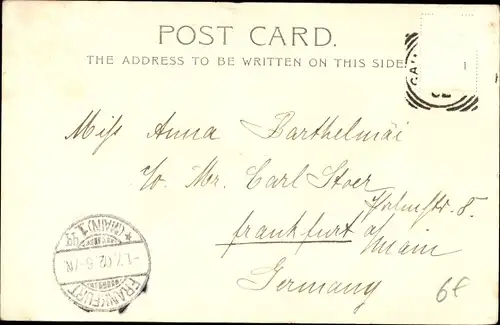 POST CARD.
THE ADDRESS TO BE WRITTEN ON THIS SIDE.
Miss Anna Barthelmäi
c/o. Mr. Carl Stoer
Palmstr. 8.
Frankfurt a/
Main
Germany
6f
FRANKFURT
-1.7.02.6-7N.
* (MAIN) 1